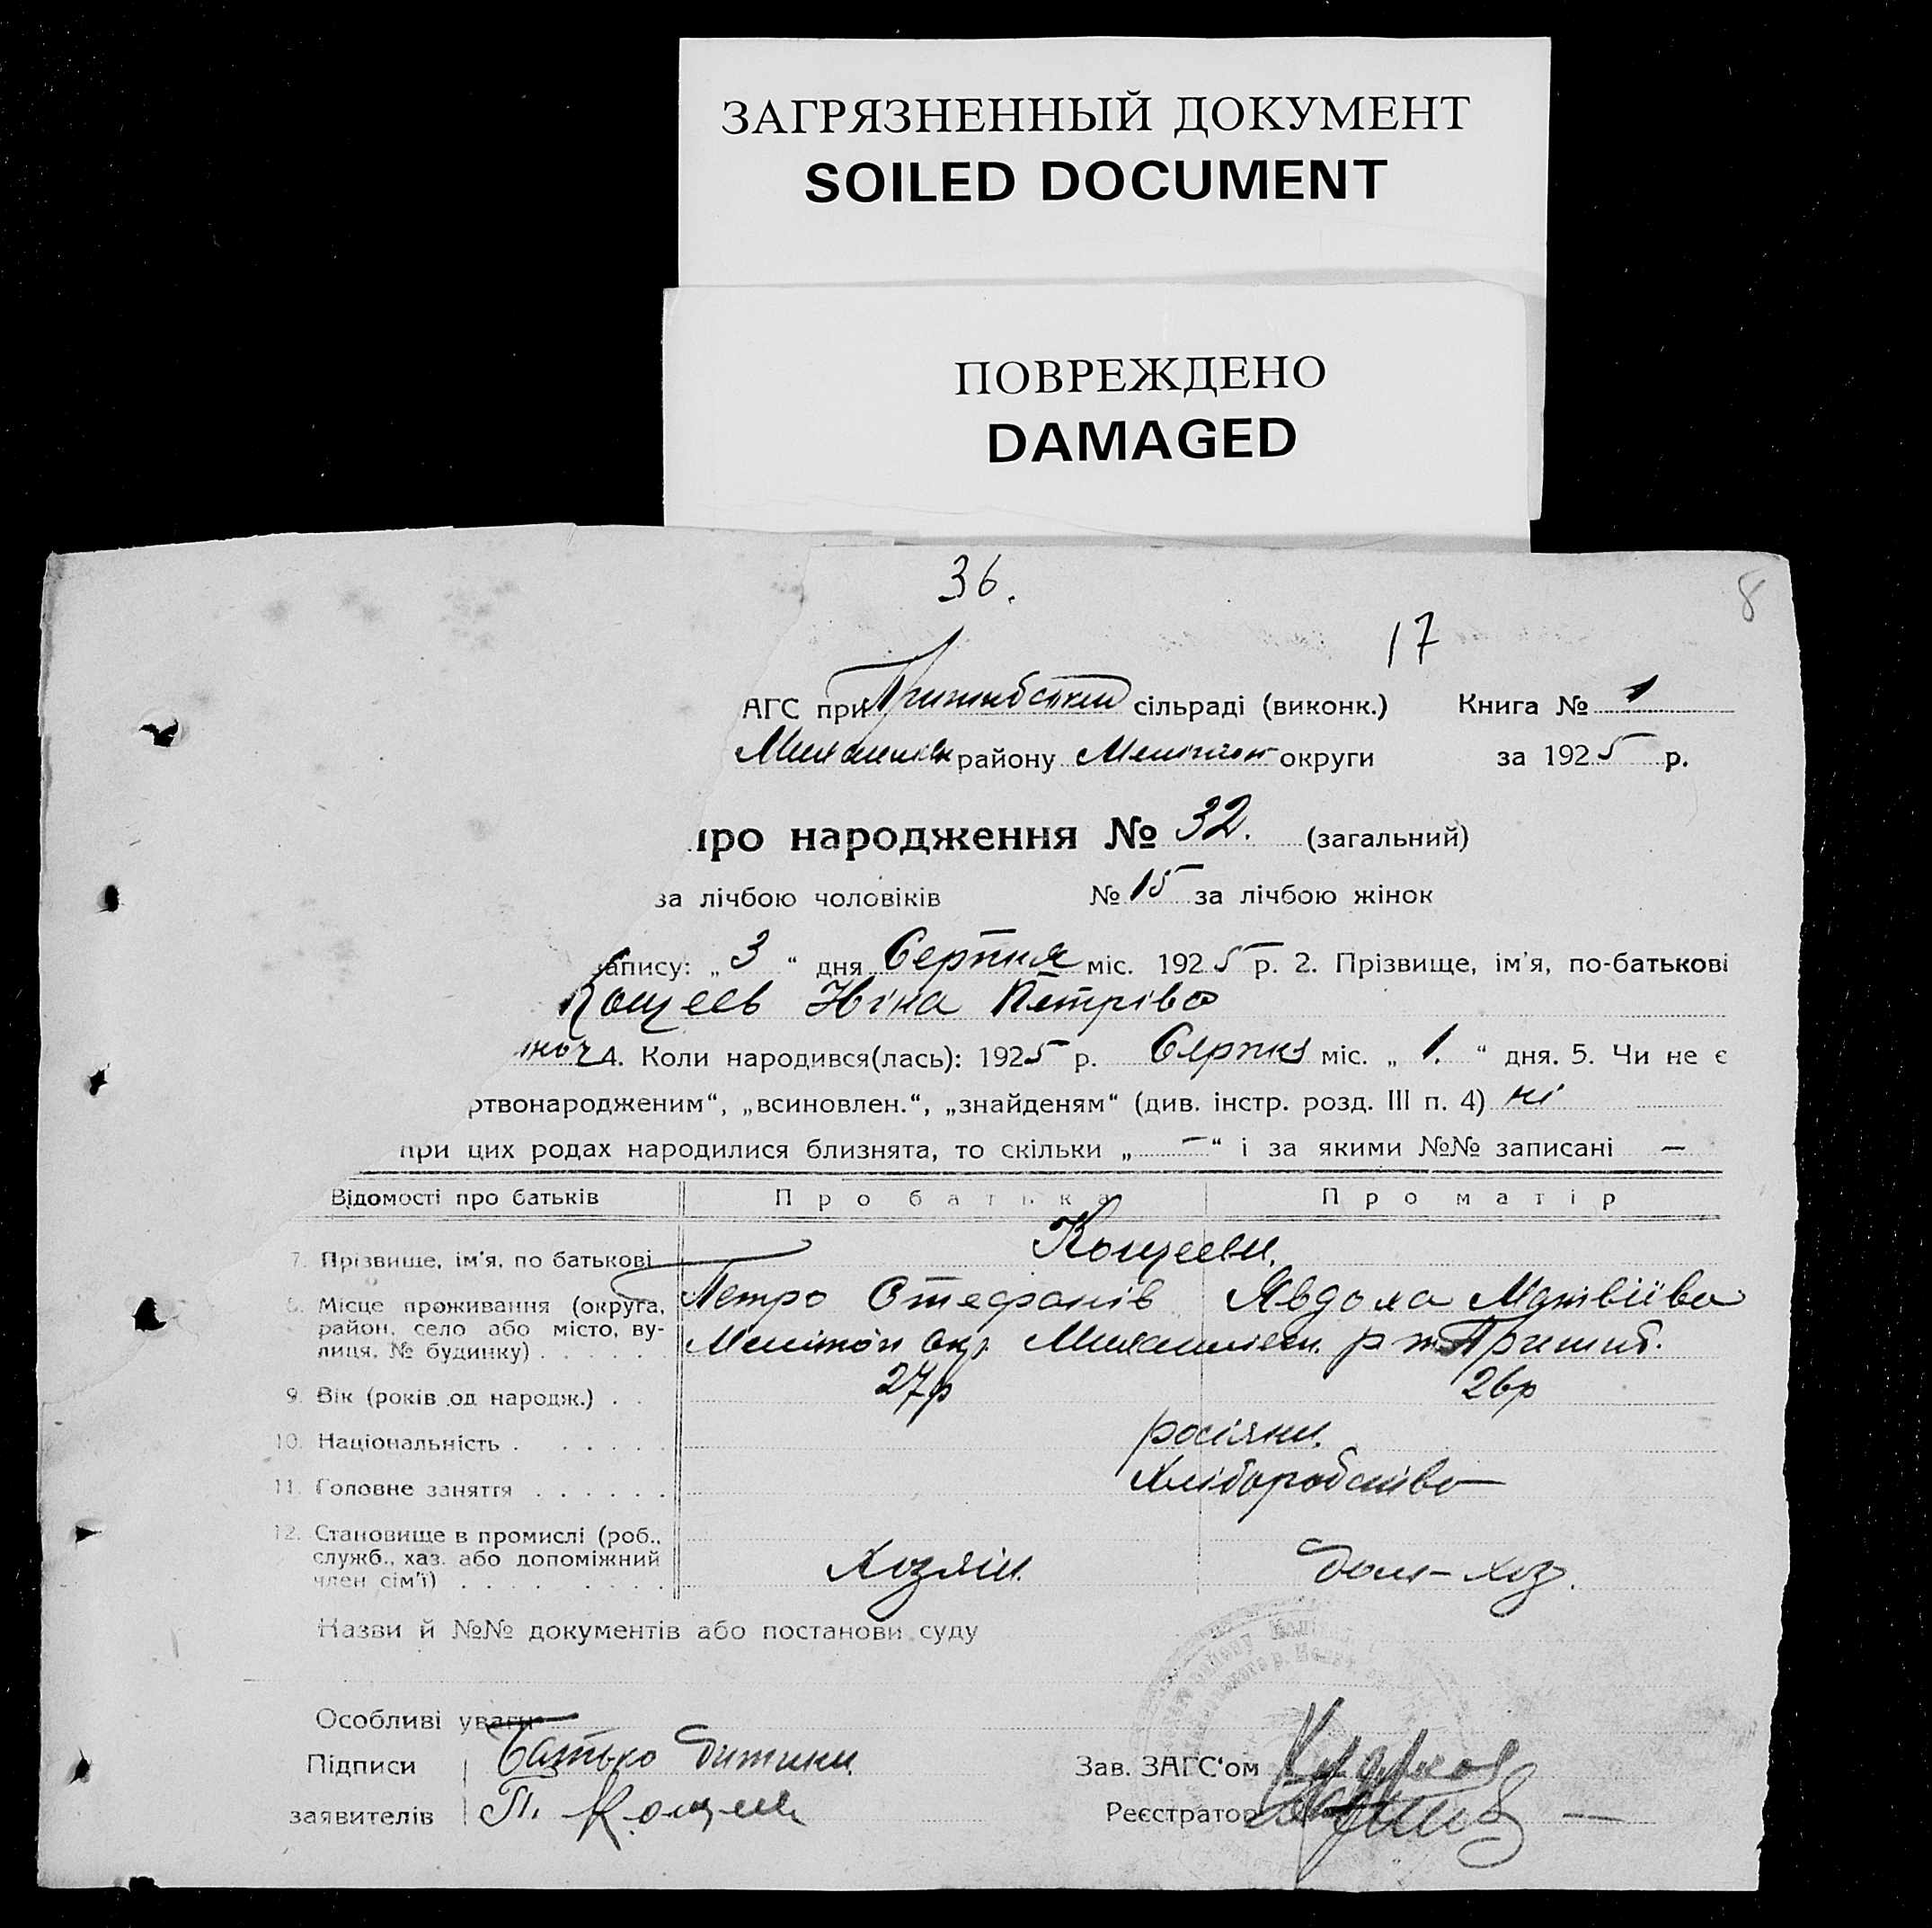 ЗАГРЯЗНЕННЫЙ ДОКУМЕНТ
SOILED DOCUMENT
ПОВРЕЖДЕНО
DAMAGED
36.
8
17
АГС при сільраді (виконк.) Книга № 1
району округи за 1925 р.
про народження № 32. (загальний)
за лічбою чоловіків № 15 за лічбою жінок
запису: „3“ дня Серпня міс. 1925 р. 2. Прізвище, ім'я, по-батькові
Кощеев Ніна Петрівa
4. Коли народився(лась): 1925 р. Серпня міс. „1.“ дня. 5. Чи не є
ртвонародженим“, „всиновлен.“, „знайденям“ (див. інстр. розд. III п. 4) ні
при цих родах народилися близнята, то скільки „—“ і за якими №№ записані —
Відомості про батьків Про батька Про матір
7. Прізвище, ім'я, по батькові Кощееви.
Петро Стефанів Явдоха Матвіїва
8. Місце проживання (округа, район, село або місто, вулиця, № будинку) . . . . .
9. Вік (років од народж.) . . 27р 26р
10. Національність . . . . . . росіяни.
11. Головне заняття . . . . . . Хліборобство
12. Становище в промислі (роб., служб., хаз. або допоміжний член сім'ї) . . . . . . . . Хозяін. дом-хоз.
Назви й №№ документів або постанови суду
Особливі уваги
Підписи Батько дитини
заявителів П. Кощеев
Зав. ЗАГС'ом
Реєстратор